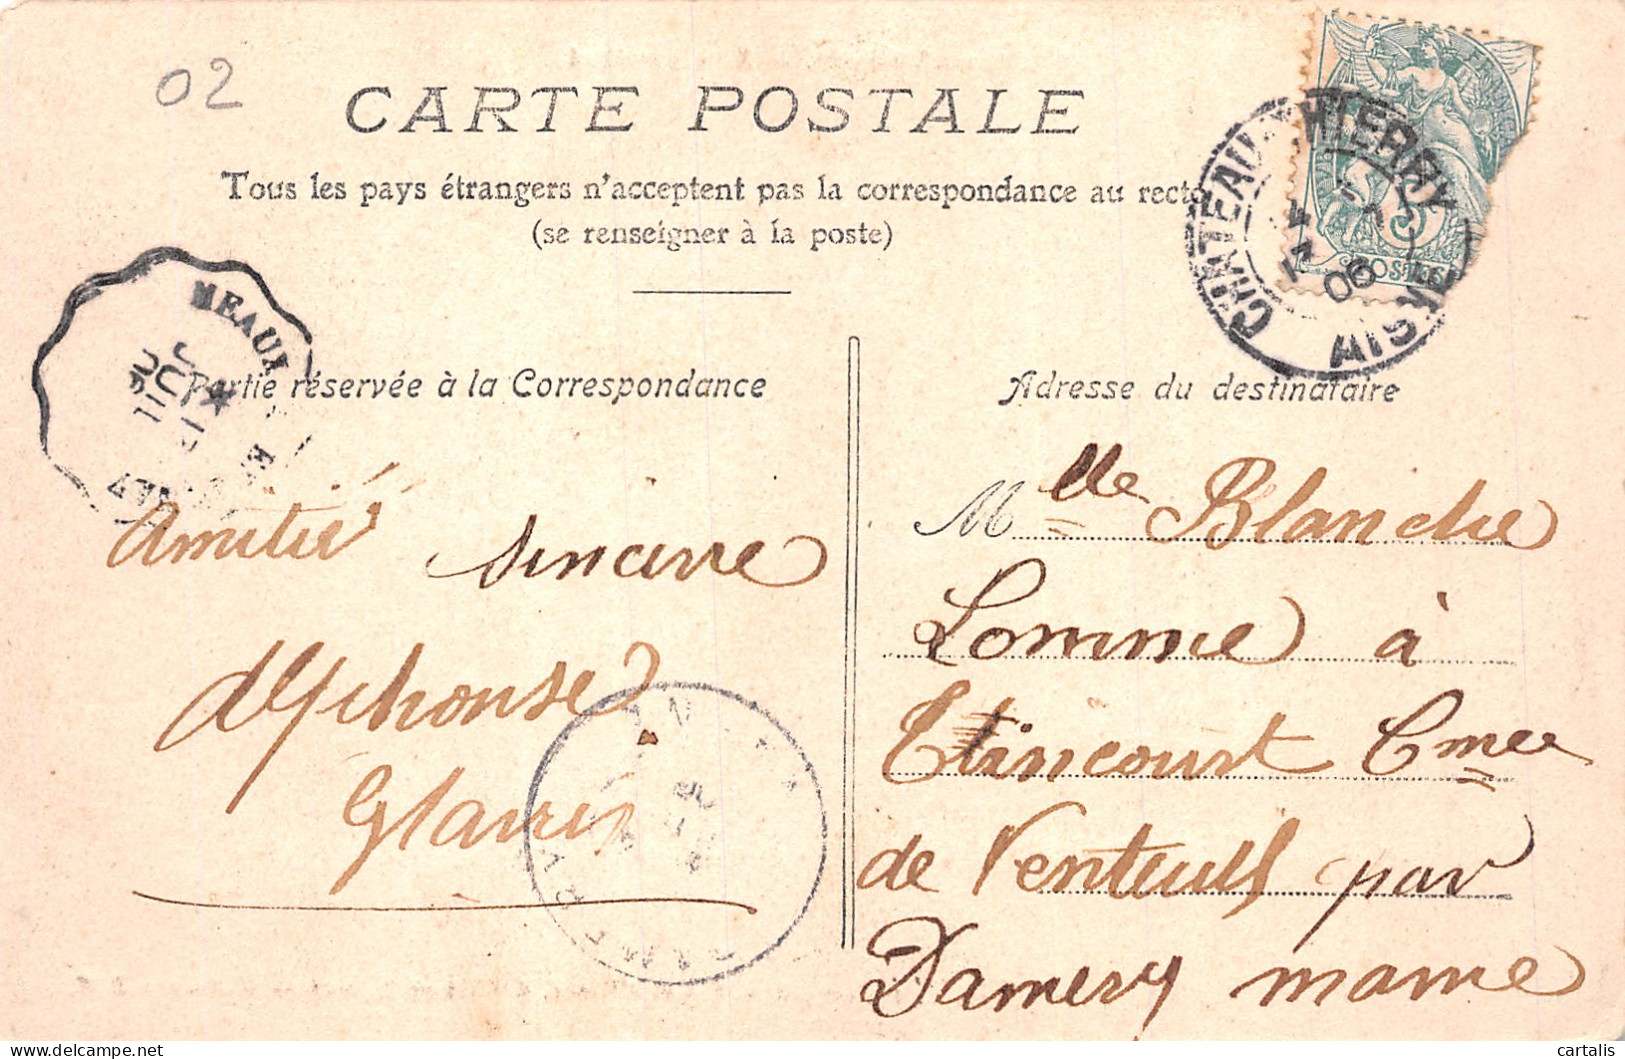 02
CARTE POSTALE
Tous les pays étrangers n'acceptent pas la correspondance au recto
(se renseigner à la poste)
CHATEAU-THIERRY
AISNE
06
MEAUX
Partie réservée à la Correspondance
Adresse du destinataire
Amitié sincère
Alphonse
Mlle Blanche
Lomme à
Etincourt Cmee
de Venteuil par
Damery marne
cartalis